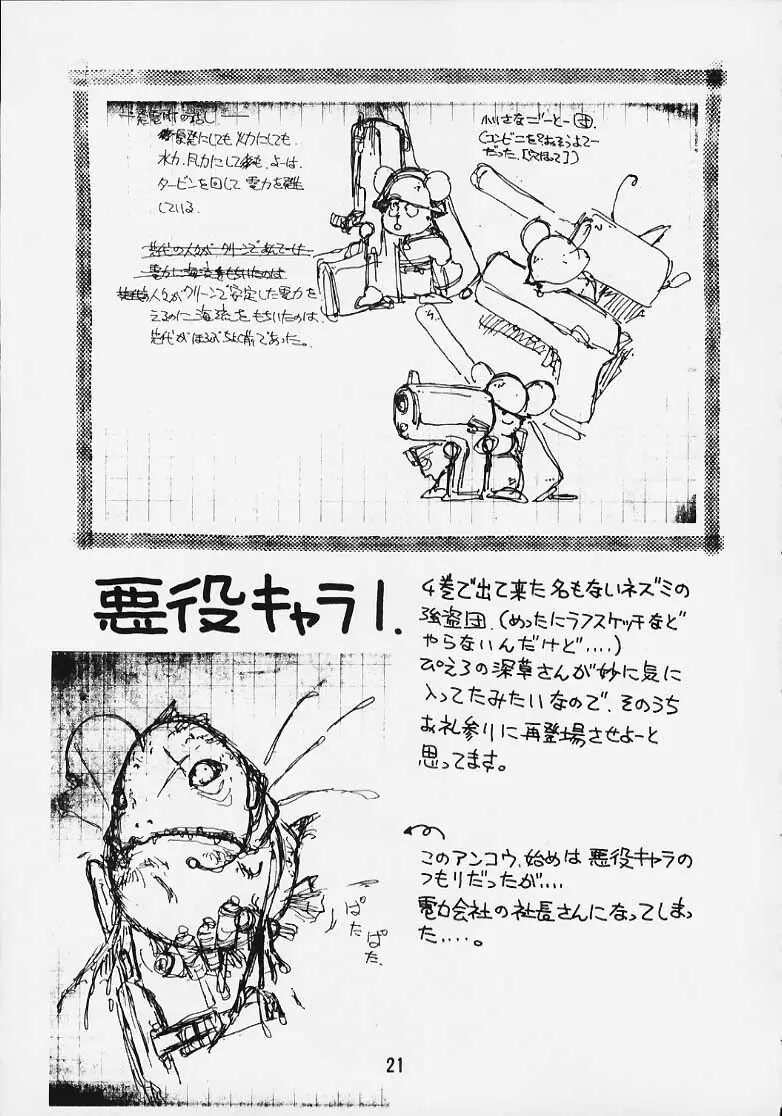 発電所の話し
発にしても火力にしても、
水力、風力にしても、よーは、
タービンを回して電力を難
している。
人々がクリーンで安定した電力を
えるのに海流をもちいたのは、
先代がほろぶちょい前であった。
小さなごーとー団。
(コンビニをおそうよてー
だった。[穴ほって])
悪役キャラ1.
4巻で出て来た名もないネズミの
強盗団。(めったにラフスケッチなど
やらないんだけど....)
ぴえろの深草さんが妙に気に
入ってたみたいなので、そのうち
お礼参りに再登場させよーと
思ってます。
このアンコウ、始めは悪役キャラの
つもりだったが....
電力会社の社長さんになってしまっ
た....。
ぱた
ぱた
21